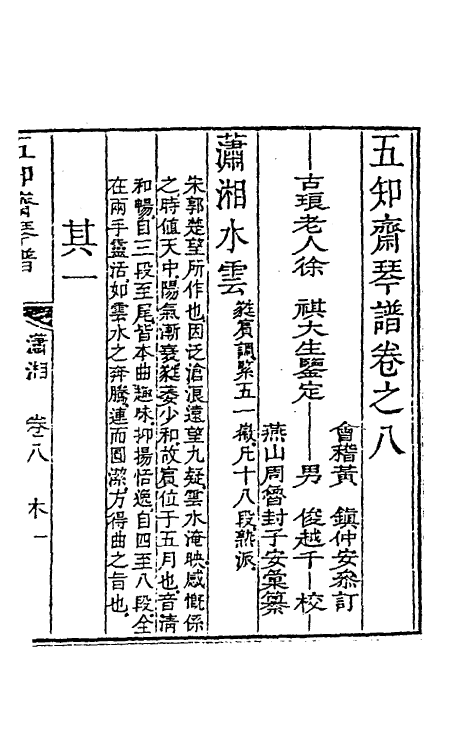 五知齋琴譜卷之八
會稽黃　鎮仲安叅訂
古琅老人徐　祺大生鑒定　男　俊越千　校
燕山周魯封子安彙纂
瀟湘水雲　蕤賓調緊五一徽凡十八段熟派
宋郭楚望所作也因泛滄浪遠望九疑雲水淹映感慨係
之時值天中陽氣漸衰蕤委少和故賓位于五月也音清
和暢自三段至尾皆本曲趣味抑揚恬逸自四至八段全
在兩手靈活如雲水之奔騰連而圓潔方得曲之旨也
其一
五知齋琴譜
瀟湘　卷八　木一